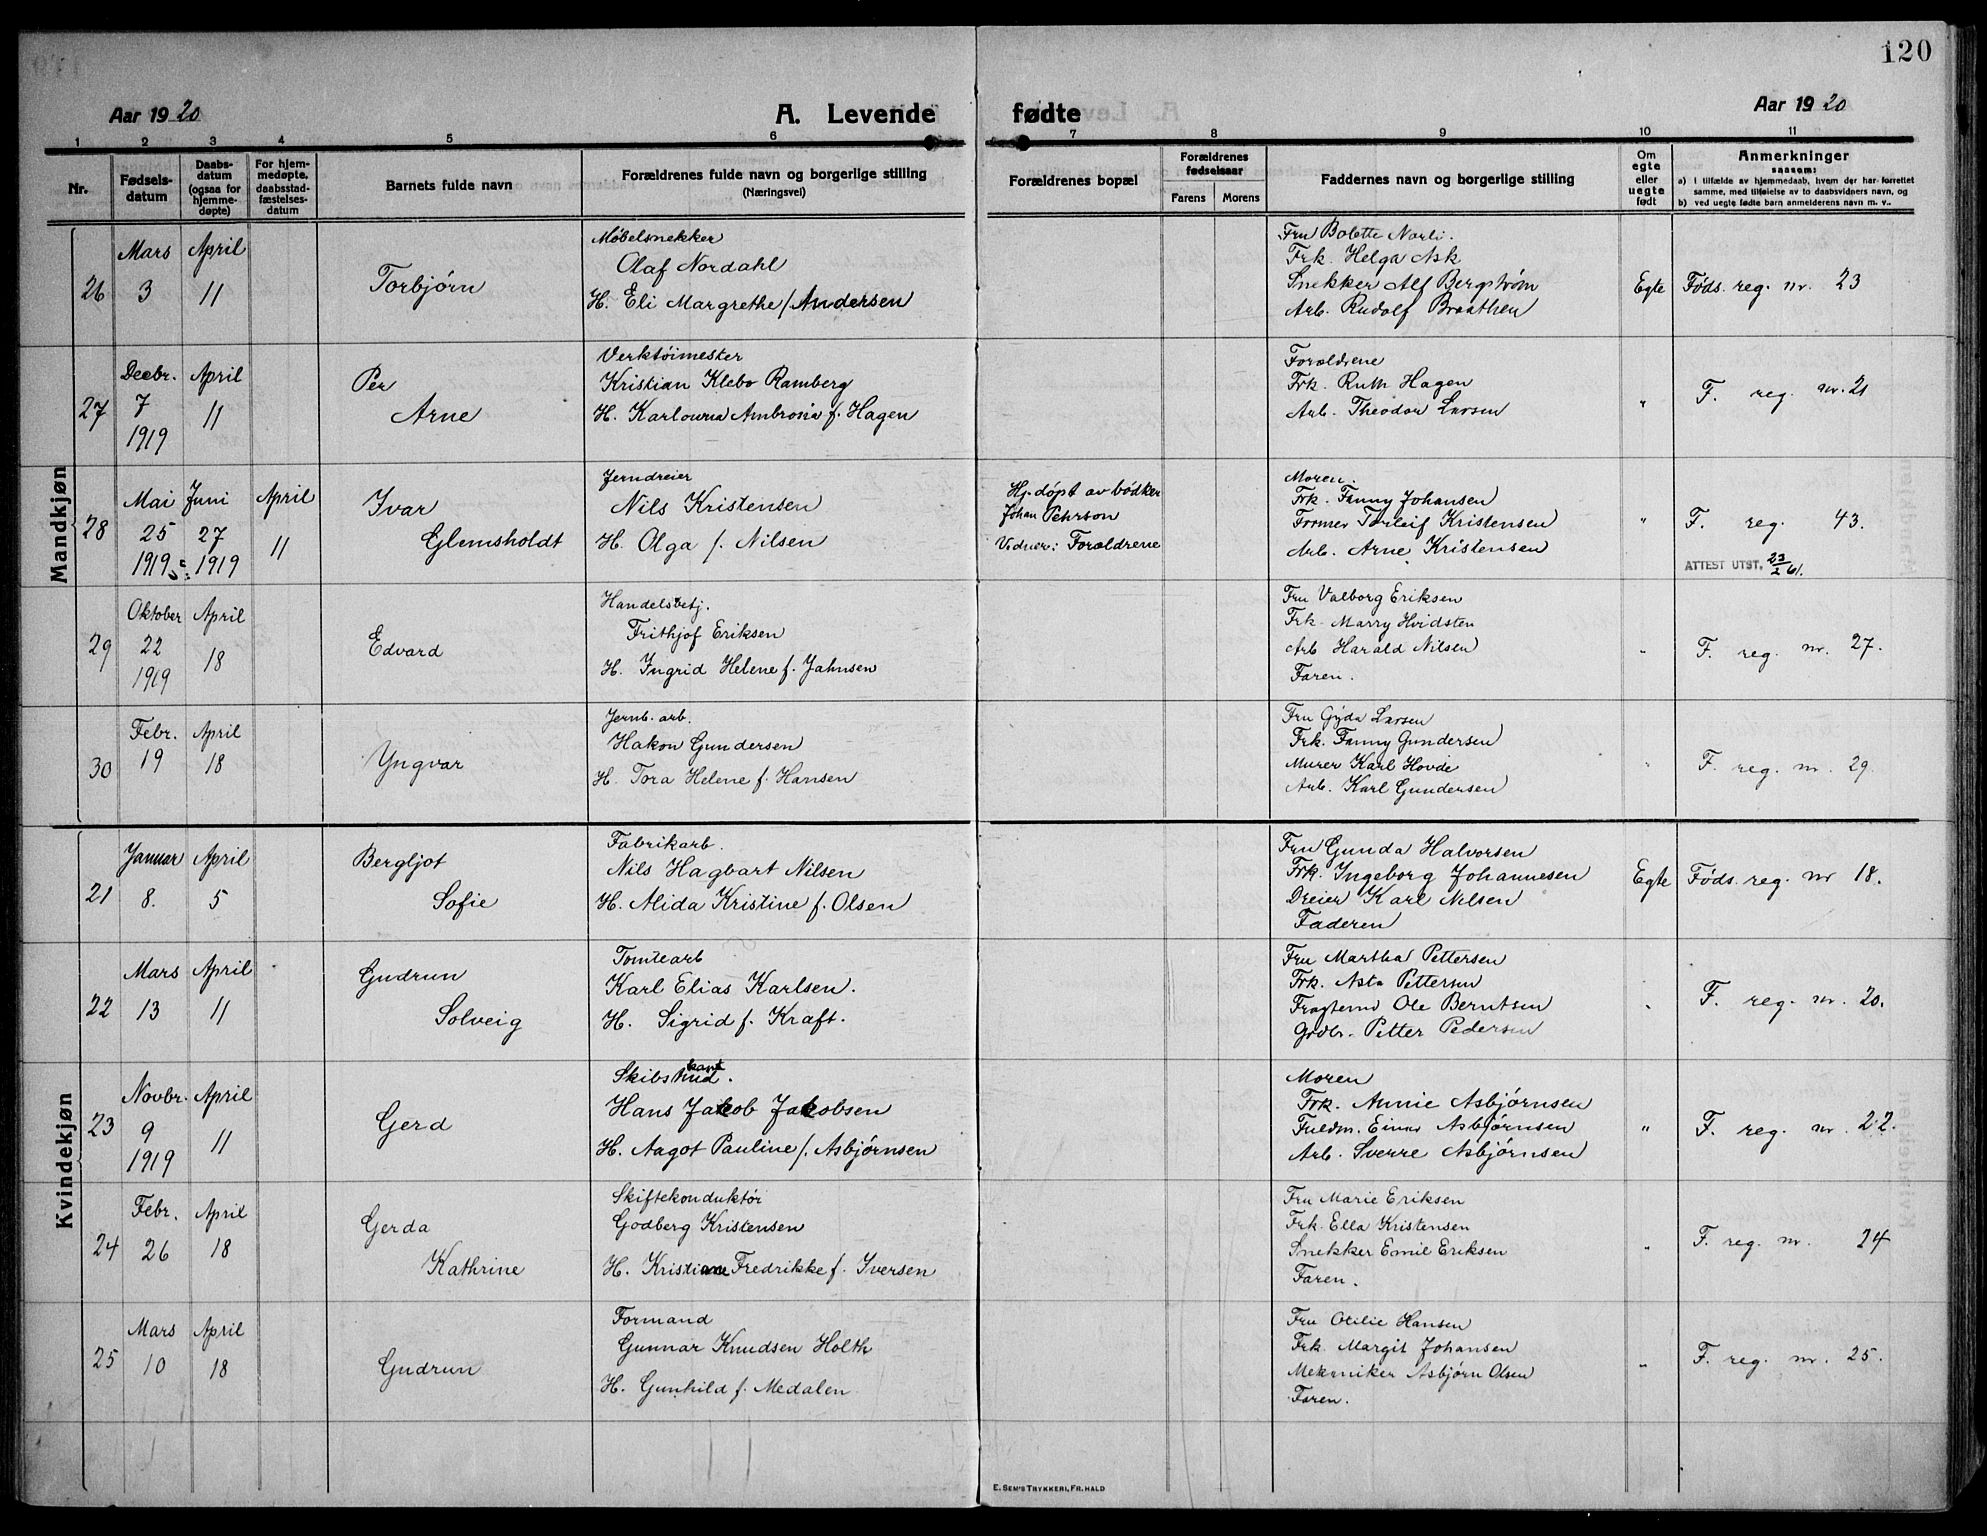 120
Aar 1920
A. Levende
fødte
Aar 1920
1 2 3 4 5 6 7 8 9 10 11
Nr.
Fødsels-
datum
Daabs-
datum
(ogsaa for
hjemme-
døpte)
For hjem-
medøpte,
daabsstad-
fæstelses-
datum
Barnets fulde navn
Forældrenes fulde navn og borgerlige stilling
(Næringsvei)
Forældrenes bopæl
Forældrenes
fødselsaar
Farens Morens
Faddernes navn og borgerlige stilling
Om
egte
eller
uegte
født
Anmerkninger
saasom:
a) I tilfælde av hjemmedaab, hvem der har forrettet
samme, med tilføielse av to daabsvidners navn, og
b) ved uegte fødte barn anmelderens navn m. v..
Mandkjøn
26
Mars
3
April
11
Torbjørn
Møbelsnekker
Olaf Nordahl
H. Eli Margrethe f. Andersen
Fru Bolette Norli.
Frk. Helga Ask
Snekker Alf Bergstrøm
Arb. Rudolf Braathen
Egte
Føds. reg. nr. 23
27
Decbr.
7
1919
April
11
Per
Arne
Verktøimester
Kristian Klebo Ramberg
H. Karlowna Ambrosia f. Hagen
Forældrene
Frk. Ruth Hagen
Arb. Theodor Larsen
"
F. reg. nr. 21
28
Mai
25
1919
Juni
27
1919
April
11
Ivar
Glemsholdt
Jerndreier
Nils Kristensen
H. Olga f. Nilsen
Hj. døpt av bødker
Johan Pehrson
Vidner: Forældrene
Moren.
Frk. Fanny Johansen
Former Torleif Kristensen
Arb. Arne Kristensen
"
F. reg. 43.
ATTEST UTST. 23/2 61.
29
Oktober
22
1919
April
18
Edvard
Handelsbetj.
Frithjof Eriksen
H. Ingrid Helene f. Jahnsen
Fru Valborg Eriksen
Frk. Marry Hvidsten
Arb Harald Nilsen
Faren.
"
F. reg. nr. 27.
30
Febr.
19
April
18
Yngvar
Jernb. arb.
Hakon Gundersen
H. Tora Helene f. Hansen
Fru Gyda Larsen
Frk. Fanny Gundersen
Murer Karl Hovde
Arb. Karl Gundersen
"
F. reg. nr. 29.
Kvindekjøn
21
Januar
8.
April
5
Bergljot
Sofie
Fabrikarb.
Nils Hagbart Nilsen
H. Alida Kristine f. Olsen
Fru Gunda Halvorsen
Frk. Ingeborg Johannesen
Dreier Karl Nilsen
Faderen
Egte
Føds. reg. nr 18.
22
Mars
13
April
11
Gudrun
Solveig
Tomtearb
Karl Elias Karlsen.
H. Sigrid f. Kraft.
Fru Martha Pettersen
Frk. Asta Pettersen
Ole Berntsen
Grdbr. Petter Pedersen
"
F. reg. nr. 20.
23
Novbr.
9
1919
April
11
Gerd
Skibs
Hans Jakob Jakobsen
H. Aagot Pauline f. Asbjørnsen
Moren
Frk. Annie Asbjørnsen
Einar Asbjørnsen
Arb. Sverre Asbjørnsen
"
F. reg. nr. 22.
24
Febr.
26
April
18
Gerda
Kathrine
Skiftekonduktør
Godberg Kristensen
H. Kristiane Fredrikke f. Iversen
Fru Marie Eriksen
Frk. Ella Kristensen
Snekker Emil Eriksen
Faren.
"
F. reg. nr. 24
25
Mars
10
April
18
Gudrun
Formand
Gunnar Knudsen Holth
H. Gunhild f. Medalen
Fru Otilie Hansen
Frk. Margit Johansen
Mekaniker Asbjørn Olsen
Faren.
"
F. reg. nr. 25.
E. SEM'S TRYKKERI, FR. HALD